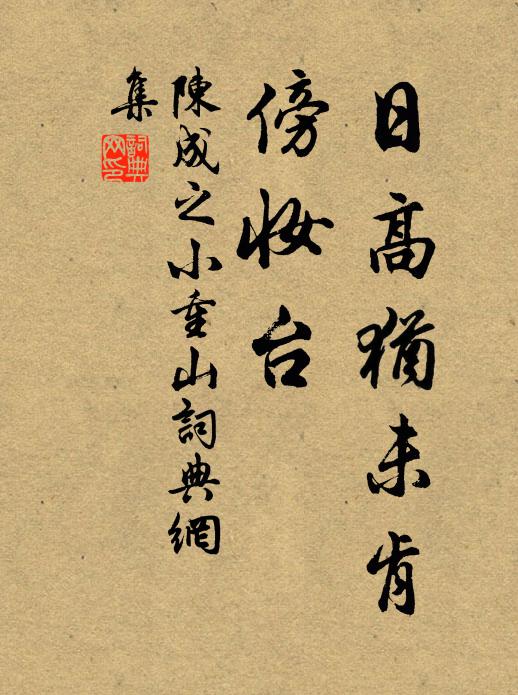 日高猶未肯
傍妝台
陳成之小重山詞典網
集
詞典
网印